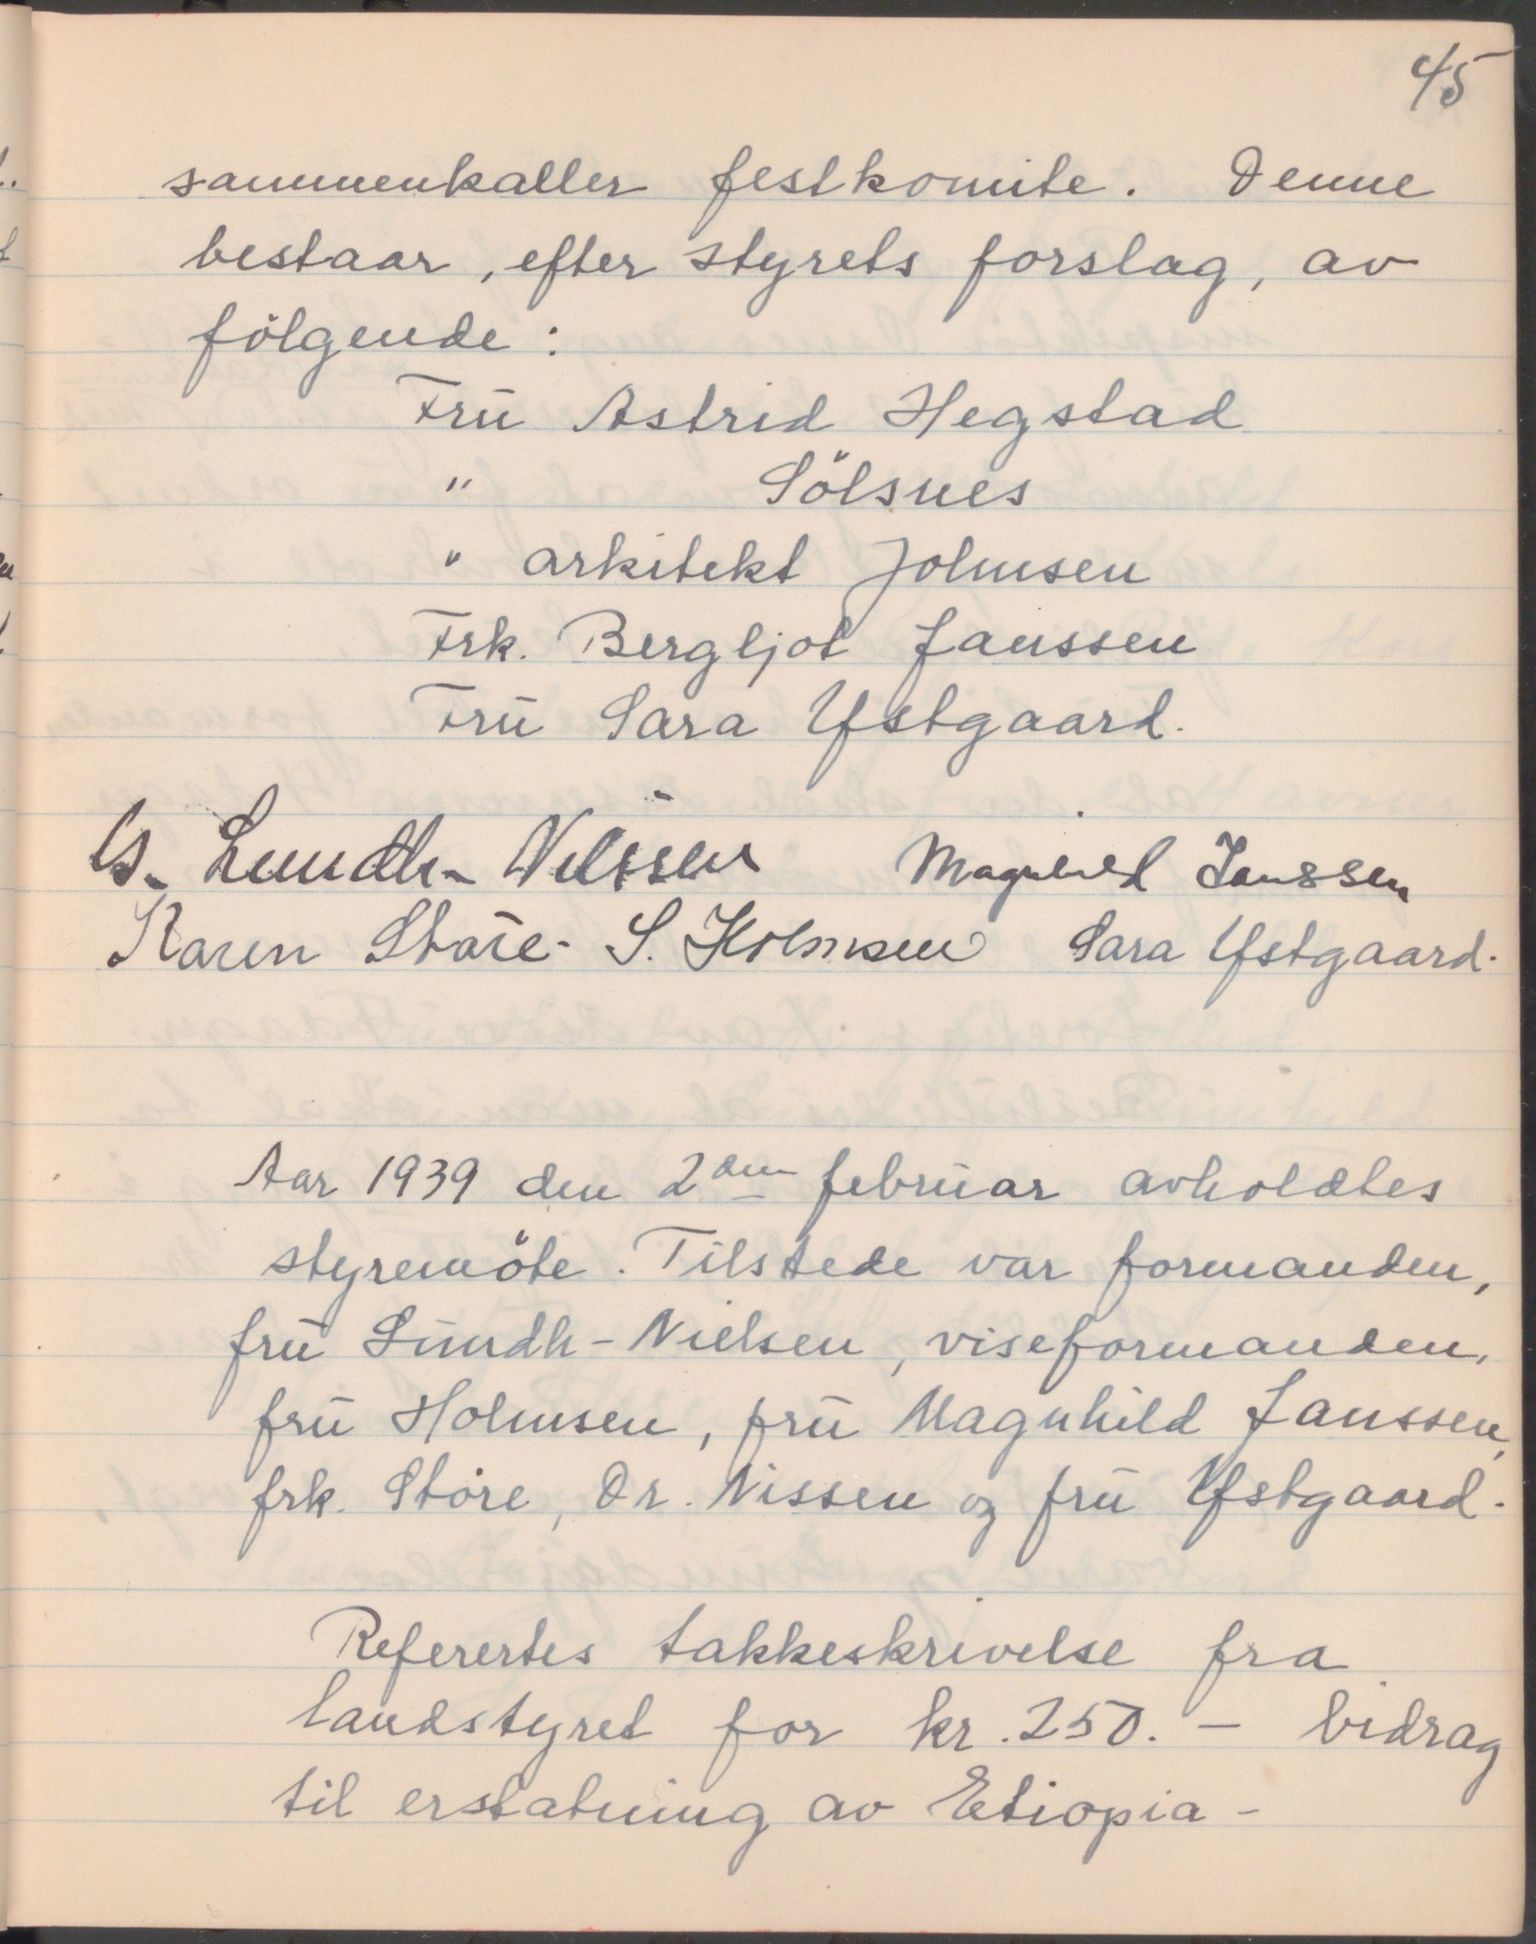 45
sammenkaller festkomite. Denne
bestaar, efter styrets forslag, av
fölgende:
Fru Astrid Hegstad
" Sölsnes
" arkitekt Johnsen
Frk. Bergljot Janssen
Fru Sara Ystgaard.
Lundh-Nilssen Magnhild Janssen
Karen Störe. S. Holmsen Sara Ystgaard.
Aar 1939 den 2den februar avholdtes
styremöte. Tilstede var formanden,
fru Lundh-Nielsen, viseformanden,
fru Holmsen, fru Magnhild Janssen,
frk. Störe, Dr. Nissen og fru Ystgaard.
Referertes takkeskrivelse fra
landstyret for kr. 250. - bidrag
til erstatning av Etiopia-